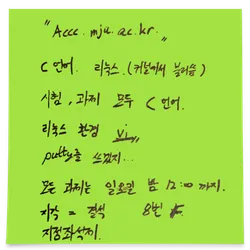 "Accc. mju. ac. kr."
C 언어. 리눅스. (커널에서 불러옴)
시험, 과제 모두 C 언어.
리눅스 환경 vi
putty를 쓰겠지...
모든 과제는 일요일 밤 12:00 까지.
지각 = 결석 8번 F.
지정좌석제.